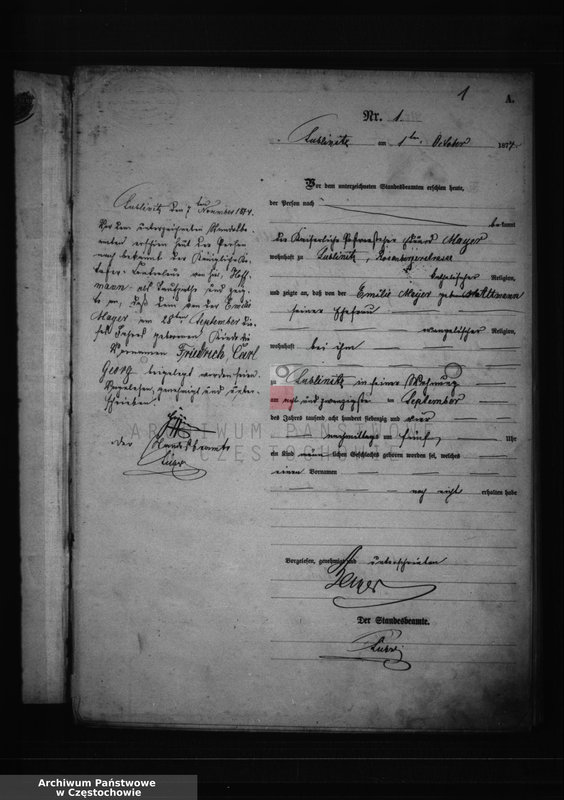 1
A.
Nr. 1
Lublinitz am 1ten October 1874.
Vor dem unterzeichneten Standesbeamten erschien heute,
der Person nach
bekannt
der Kaiserliche Mayer
wohnhaft zu Lublinitz,
katholischer Religion,
und zeigte an, daß von der Emilie Mayer geborene
seiner Ehefrau
evangelischer Religion,
wohnhaft bei ihm
zu Lublinitz in seiner Wohnung
am acht und zwanzigsten September
des Jahres tausend acht hundert siebenzig und vier
nachmittags um fünf Uhr
ein Kind männlichen Geschlechts geboren worden sei, welches
einen Vornamen
noch nicht erhalten habe
Vorgelesen, genehmigt und unterschrieben
Der Standesbeamte.
Lublinitz den 7ten November 1874.
Vor dem unterzeichneten Standesbe-
amten erschien heut der Person
nach bekannt der Königliche
und zeig-
te an, daß dem von der Emilie
Mayer am 28ten September die-
ses Jahres geborenen Kinde die
Vornamen Friedrich, Carl
Georg beigelegt worden seien.
Vorgelesen, genehmigt und unter-
schrieben
Der Standesbeamte
ARCHIWUM PAŃSTWOWE
W CZĘSTOCHOWIE
Archiwum Państwowe
w Częstochowie